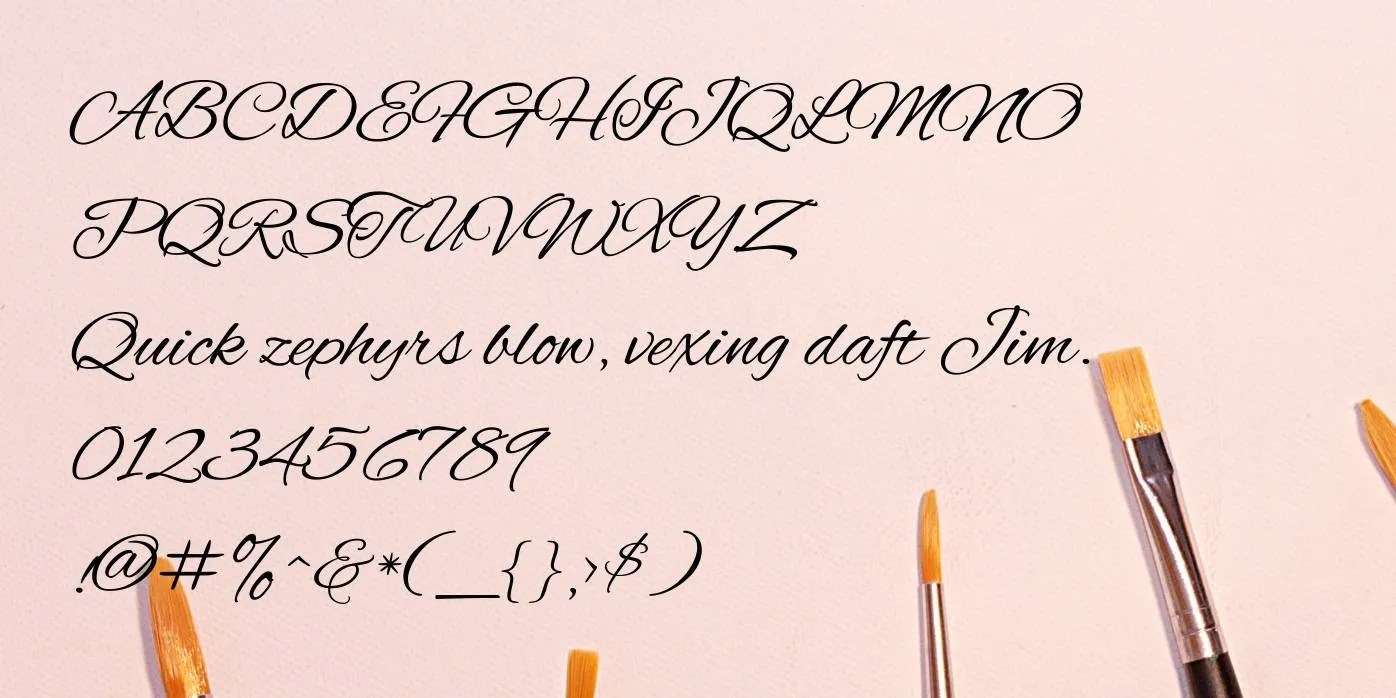 ABCDEFGHIJQLMNO
PQRSTUVWXYZ
Quick zephyrs blow, vexing daft Jim.
0123456789
!@#%^&*(__{},>$ )